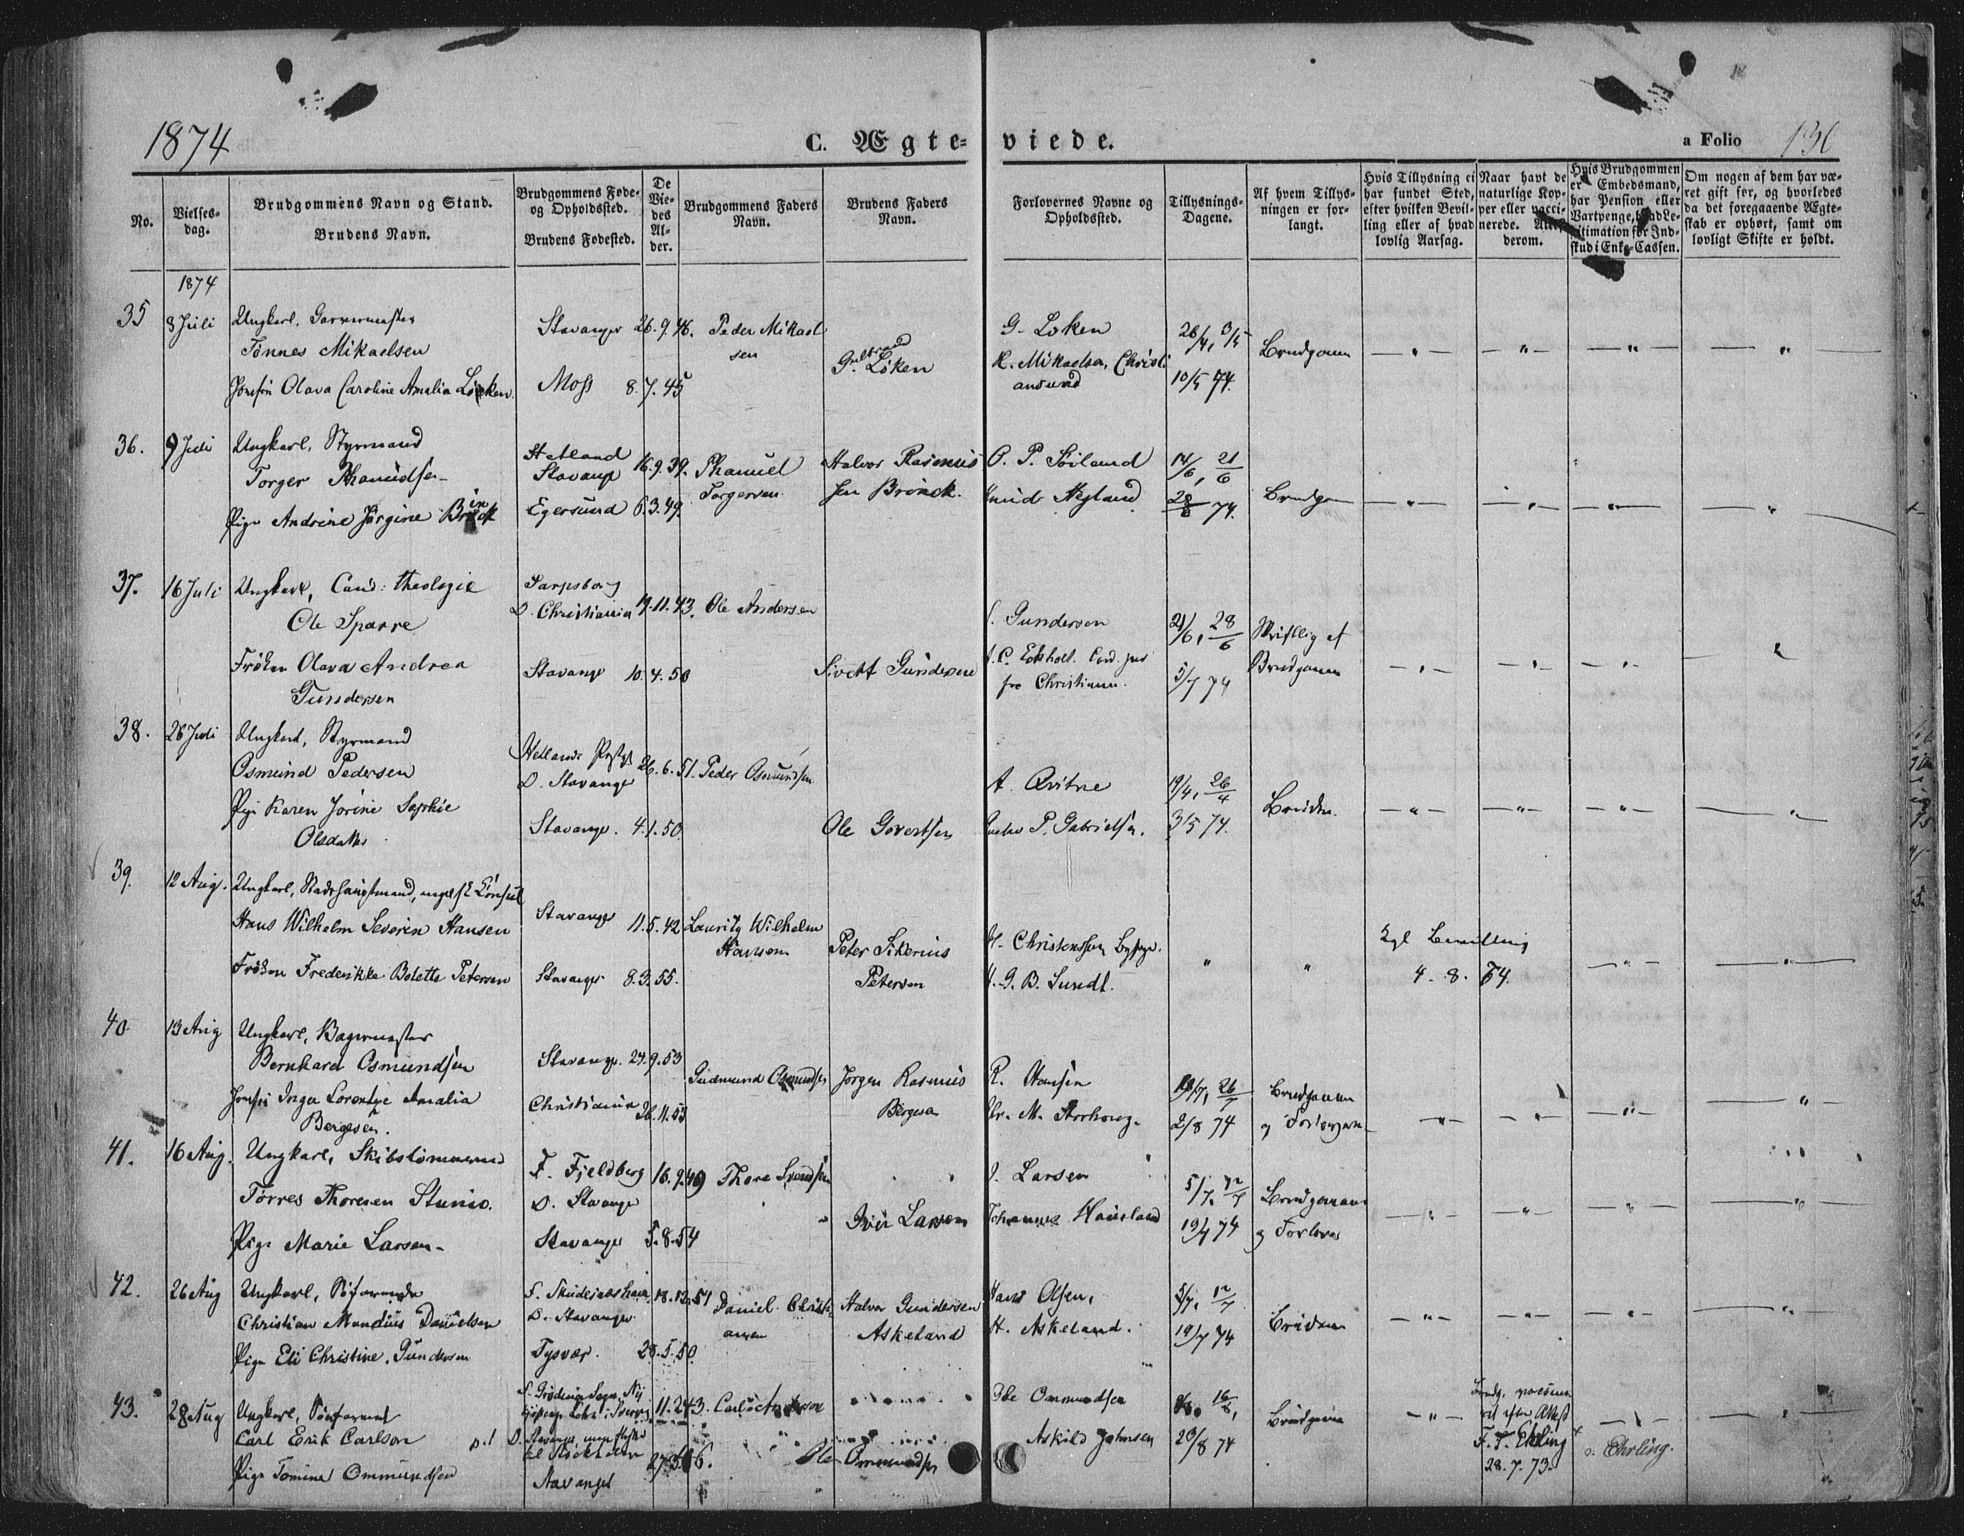 1874
C. Ægte-
viede.
a Folio 130
No.
Vielses-
dag.
Brudgommens Navn og Stand.
Brudens Navn.
Brudgommens Føde-
og Opholdssted.
Brudens Fødested.
De
Vie-
des
Al-
der.
Brudgommens Faders
Navn.
Brudens Faders
Navn.
Forlovernes Navne og
Opholdssted.
Tillysnings-
Dagene.
Af hvem Tillys-
ningen er for-
langt.
Hvis Tillysning ei
har fundet Sted,
efter hvilken Bevil-
ling eller af hvad
lovlig Aarsag.
Naar havt de
naturlige Kop-
per eller vacci-
nerede. Att-
derom.
Hvis Brudgommen
er Embedsmand,
har Pension eller
Vartpenge, hvad Le-
gitimation for Ind-
skud i Enke-Cassen.
Om nogen af dem har væ-
ret gift før, og hvorledes
da det foregaaende Ægte-
skab er ophørt, samt om
lovligt Skifte er holdt.
1874
35
8 Juli
Ungkarl, Garvermester
Tønnes Mikaelsen
Jomfru Olava Caroline Amalia Løken
Stavanger
Moss
26.9.46.
8.7.45
Peder Mikael
sen
Gulbrand
Løken
G. Løken
K. Mikaelsen, Christi
ansund
26/4, 3/5
10/5 74.
Brudgom
36.
9 Juli
Ungkarl, Styrmand
Torger Thanuelsen
Pige Andrine Jørgine Brinck
Hetland
Stavanger
Egersund
16.9.39.
6.3.49.
Phanuel
Torgersen
Halvor Rasmus
sen Brinck.
O. P. Söiland
Knud Nygland
14/6, 21/6
28/6 74.
Brudgom
37.
16 Juli
Ungkarl, Cand: theologie
Ole Sparre
Frøken Olava Andrea
Gundersen
Sarpsborg
O. Christiania
Stavanger
19.11.43.
10.4.50
Ole Andersen
Sivert Gundersen
S. Gundersen
J. C. Eckholt. Cand. jur
fra Christiania.
21/6, 28/6
5/7 74
Skriftlig af
Brudgommen
38.
26 Juli
Ungkarl, Styrmand
Osmund Pedersen
Pige Karen Jorine Sophie
Olsdatter
Hetlands Prstgj
O. Stavanger
Stavanger.
26.6.51.
4.1.50.
Peder Osmundsen
Ole Govertsen
A. Qvitne
Gustav P. Gabrielsen.
19/4, 26/4
3/5 74.
Bruden.
39.
12 Aug.
Ungkarl, Stadshauptmand, engelsk Consul
Hans Wilhelm Severin Hansen
Frøken Frederikke Bolette Petersen
Stavanger
Stavanger
11.5.42
8.3.55.
Lauritz Wilhelm
Hansen
Peter Sikerius
Petersen
H. Christensen Byfgd.
H. G. B. Sundt.
Kgl Bevilling
4. 8. 74.
40
13 Aug
Ungkarl, Bagermester
Bernhard Osmundsen
Jomfru Inga Lorentze Amalia
Bergesen.
Stavanger.
Christiania
24.9.53
26.11.53
Gudmund Osmundsen
Jørgen Rasmus
Bergesen
R. Hansen
Chr. M. Storhoug.
19/7, 26/7
2/8 74
Brudgommen
og Forloveren
41.
16 Aug.
Ungkarl, Skibstømmermd
Tørres Thoresen Stumo.
Pige Marie Larsen
F. Fjeldberg
O. Stavanger
Stavanger
16.9.49
5.8.54
Thore Svendsen
Iver Larsen
J. Larsen
Johannes Hausland
5/7, 12/7
19/7 74
Brudgommen
og Forlover
42.
26 Aug
Ungkarl, Søfarende
Christian Mandius Danielsen
Pige Eli Christine Gundersen
F. Skudesneshavn
O. Stavanger
Tysvær.
18.12.51
28.5.50.
Daniel Christi
ansen
Halvor Gundersen
Askeland
Hans Olsen,
H. Askeland.
5/7, 12/7
19/7 74
Bruden
43.
28 Aug
Ungkarl, Søfarende
Carl Erik Carlson
Pige Tomine Ommundsen
Stavanger
11.2.43.
Carl Anderson
Ole Ommundsen
Obe Ommundsen
Askild Johnsen
16/8,
23/8 74
Brudgommen
Brudg. vaccine
ret efter Attest
F. T. Ehrling
28.7.73.
Ehrling.